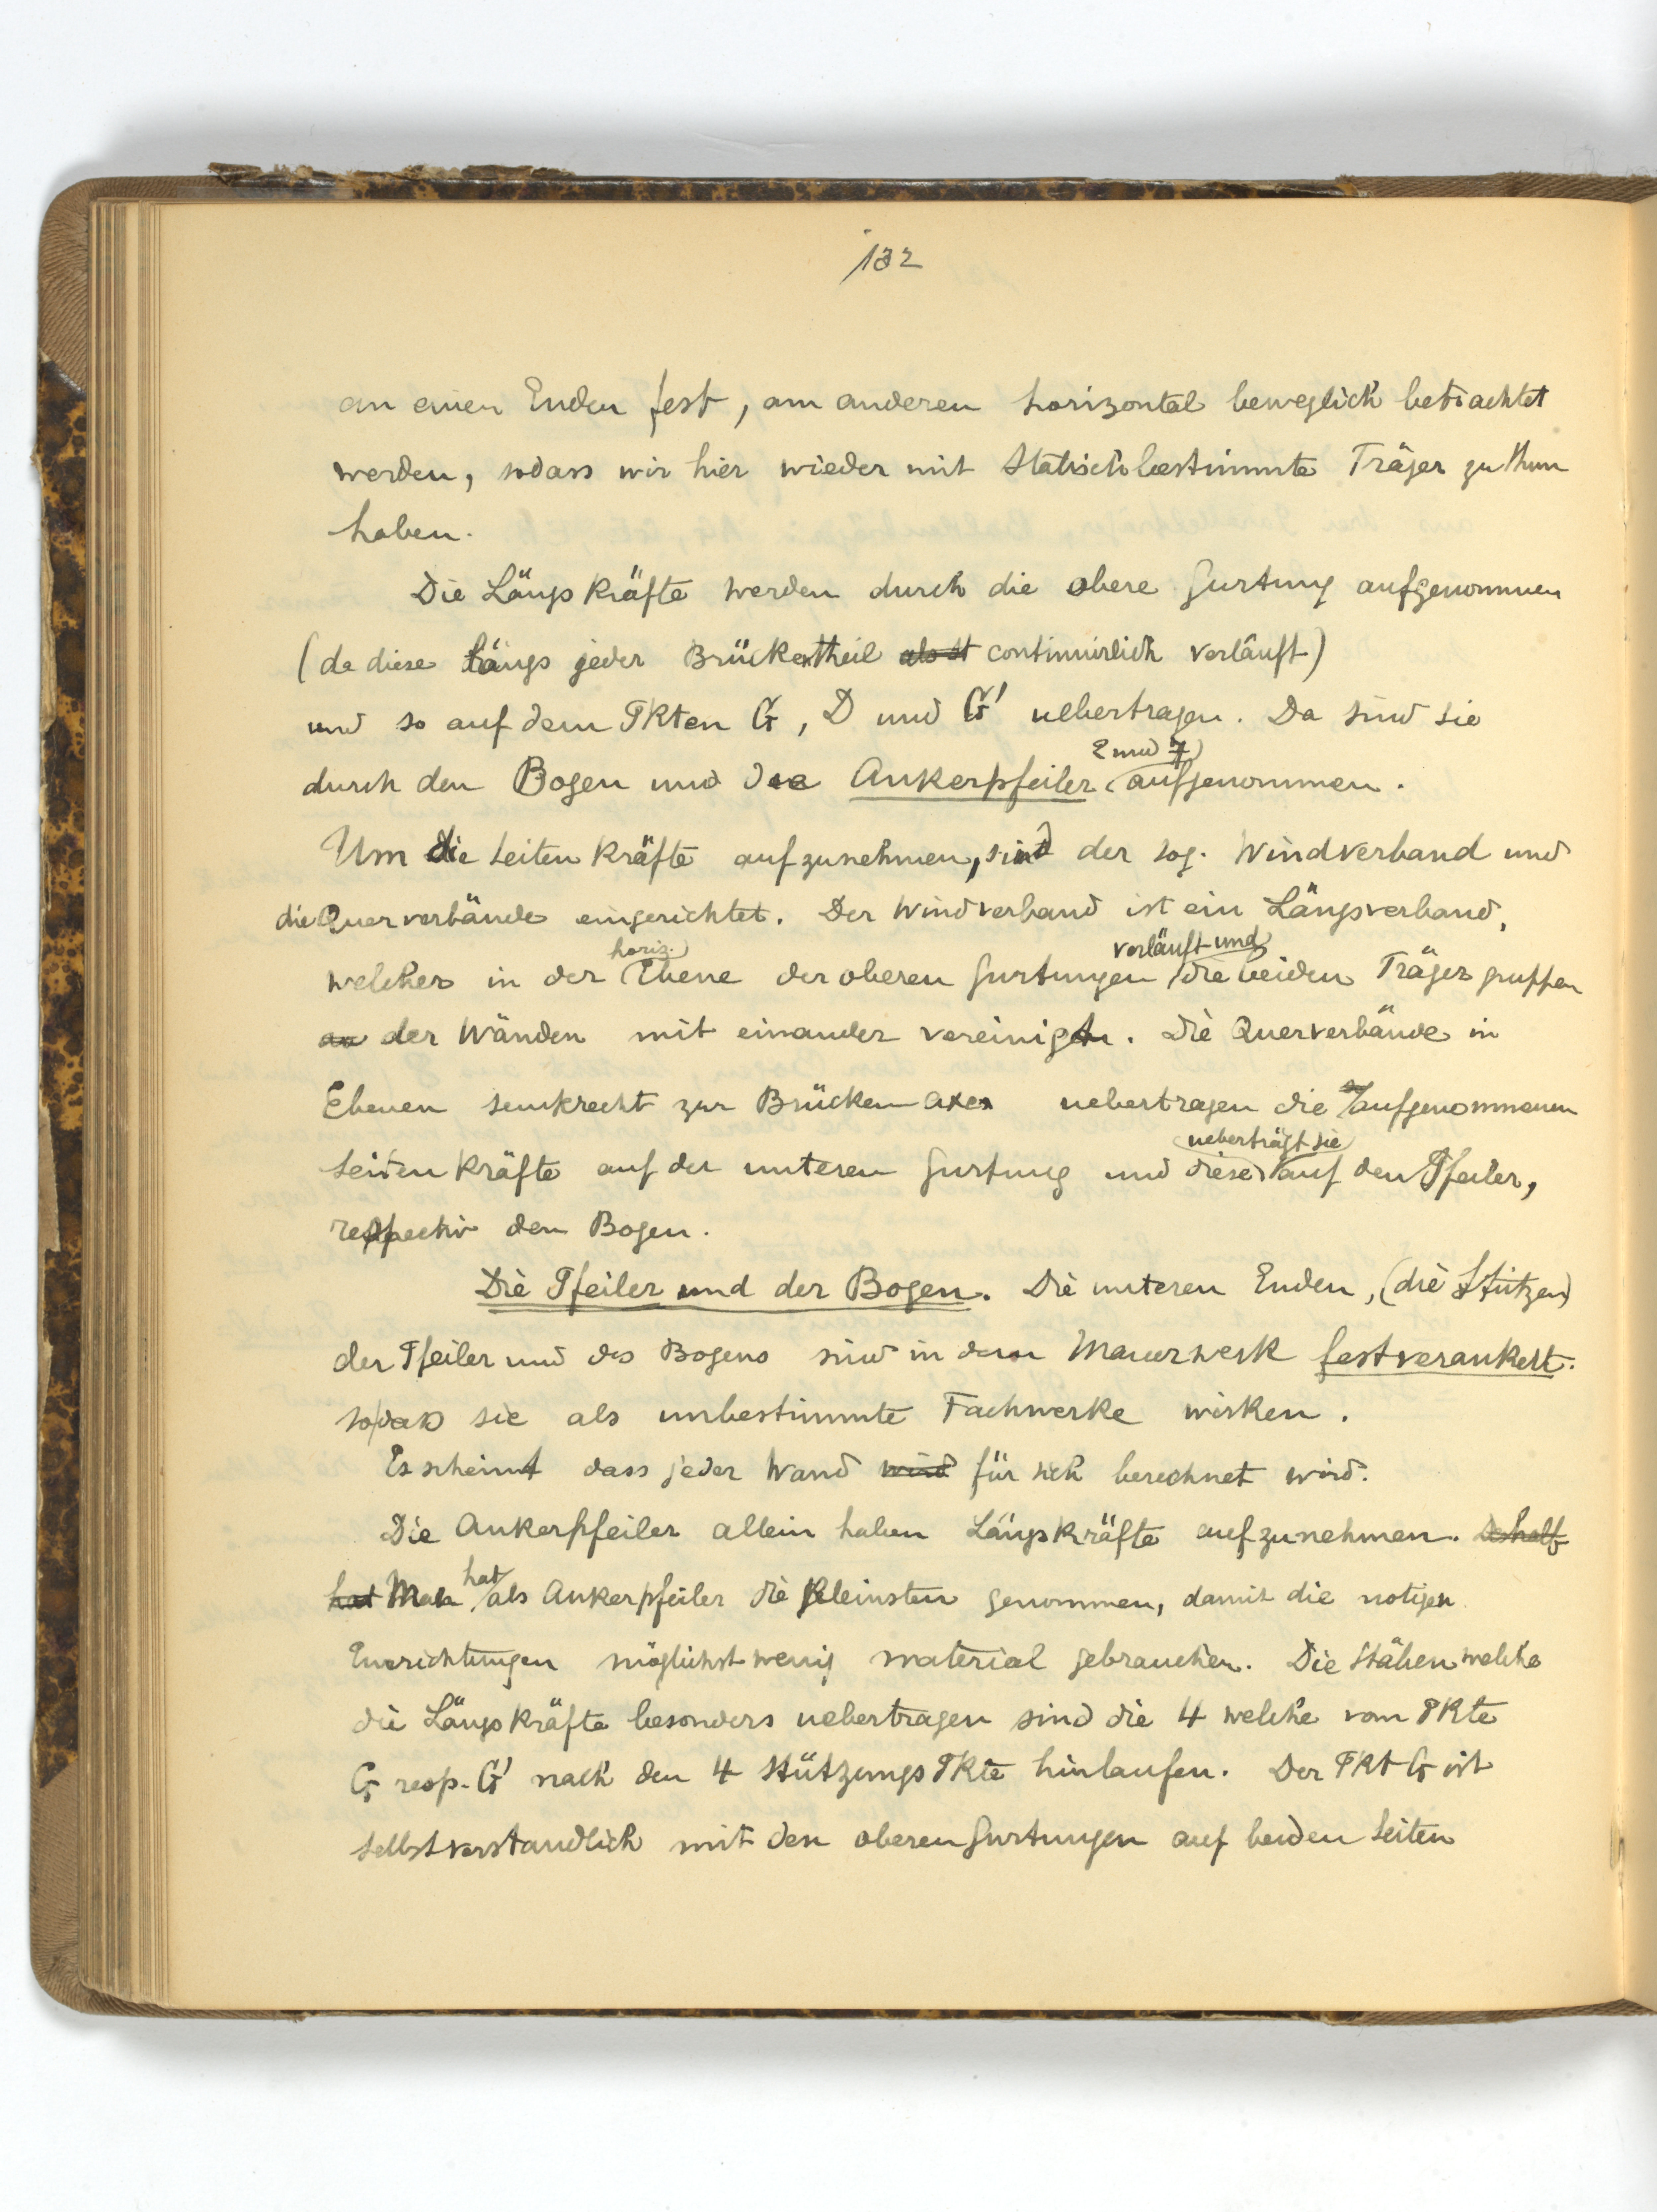 132
an einen Enden fest, am anderen horizontal beweglich betrachtet
werden, sodass wir hier wieder mit Statisch bestimmte Träger zu thun
haben.
Die Längskräfte werden durch die obere Gurtung aufgenommen
(da diese längs jeder Brückentheil continuirlich verläuft)
und so auf dem Pkten G, D und G' uebertragen. Da sind sie
2 und 7
durch den Bogen und die Ankerpfeiler aufgenommen.
Um die Seitenkräfte aufzunehmen, sind der sog. Windverband und
die Querverbände eingerichtet. Der Windverband ist ein Längsverband,
horiz. verläuft und
welcher in der Ebene der oberen Gurtungen die beiden Träger gruppen
an der Wänden mit einander vereinigen. Die Querverbände in
Ebenen senkrecht zur Brückenaxe uebertragen die aufgenommenen
ueberträgt sie
Seitenkräfte auf der unteren Gurtung und diese auf den Pfeiler,
respectiv den Bogen.
Die Pfeiler und der Bogen. Die unteren Enden, (die Stützen)
der Pfeiler und des Bogens sind in dem Mauerwerk fest verankert.
sodass sie als unbestimmte Fachwerke wirken.
Es scheint dass jeder Wand wird für sich berechnet wird.
Die Ankerpfeiler allein haben Längskräfte aufzunehmen. Deshalb
hat
hat Man als Ankerpfeiler die Kleinsten genommen, damit die notigen
Einrichtungen möglichst wenig material gebrauchen. Die Stäben welche
die Längskräfte besonders uebertragen sind die 4 welche vom Pkte
G resp. G' nach den 4 Stützungs Pkte hinlaufen. Der Pkt G ist
selbstverstandlich mit den oberen Gurtungen auf beiden Seiten